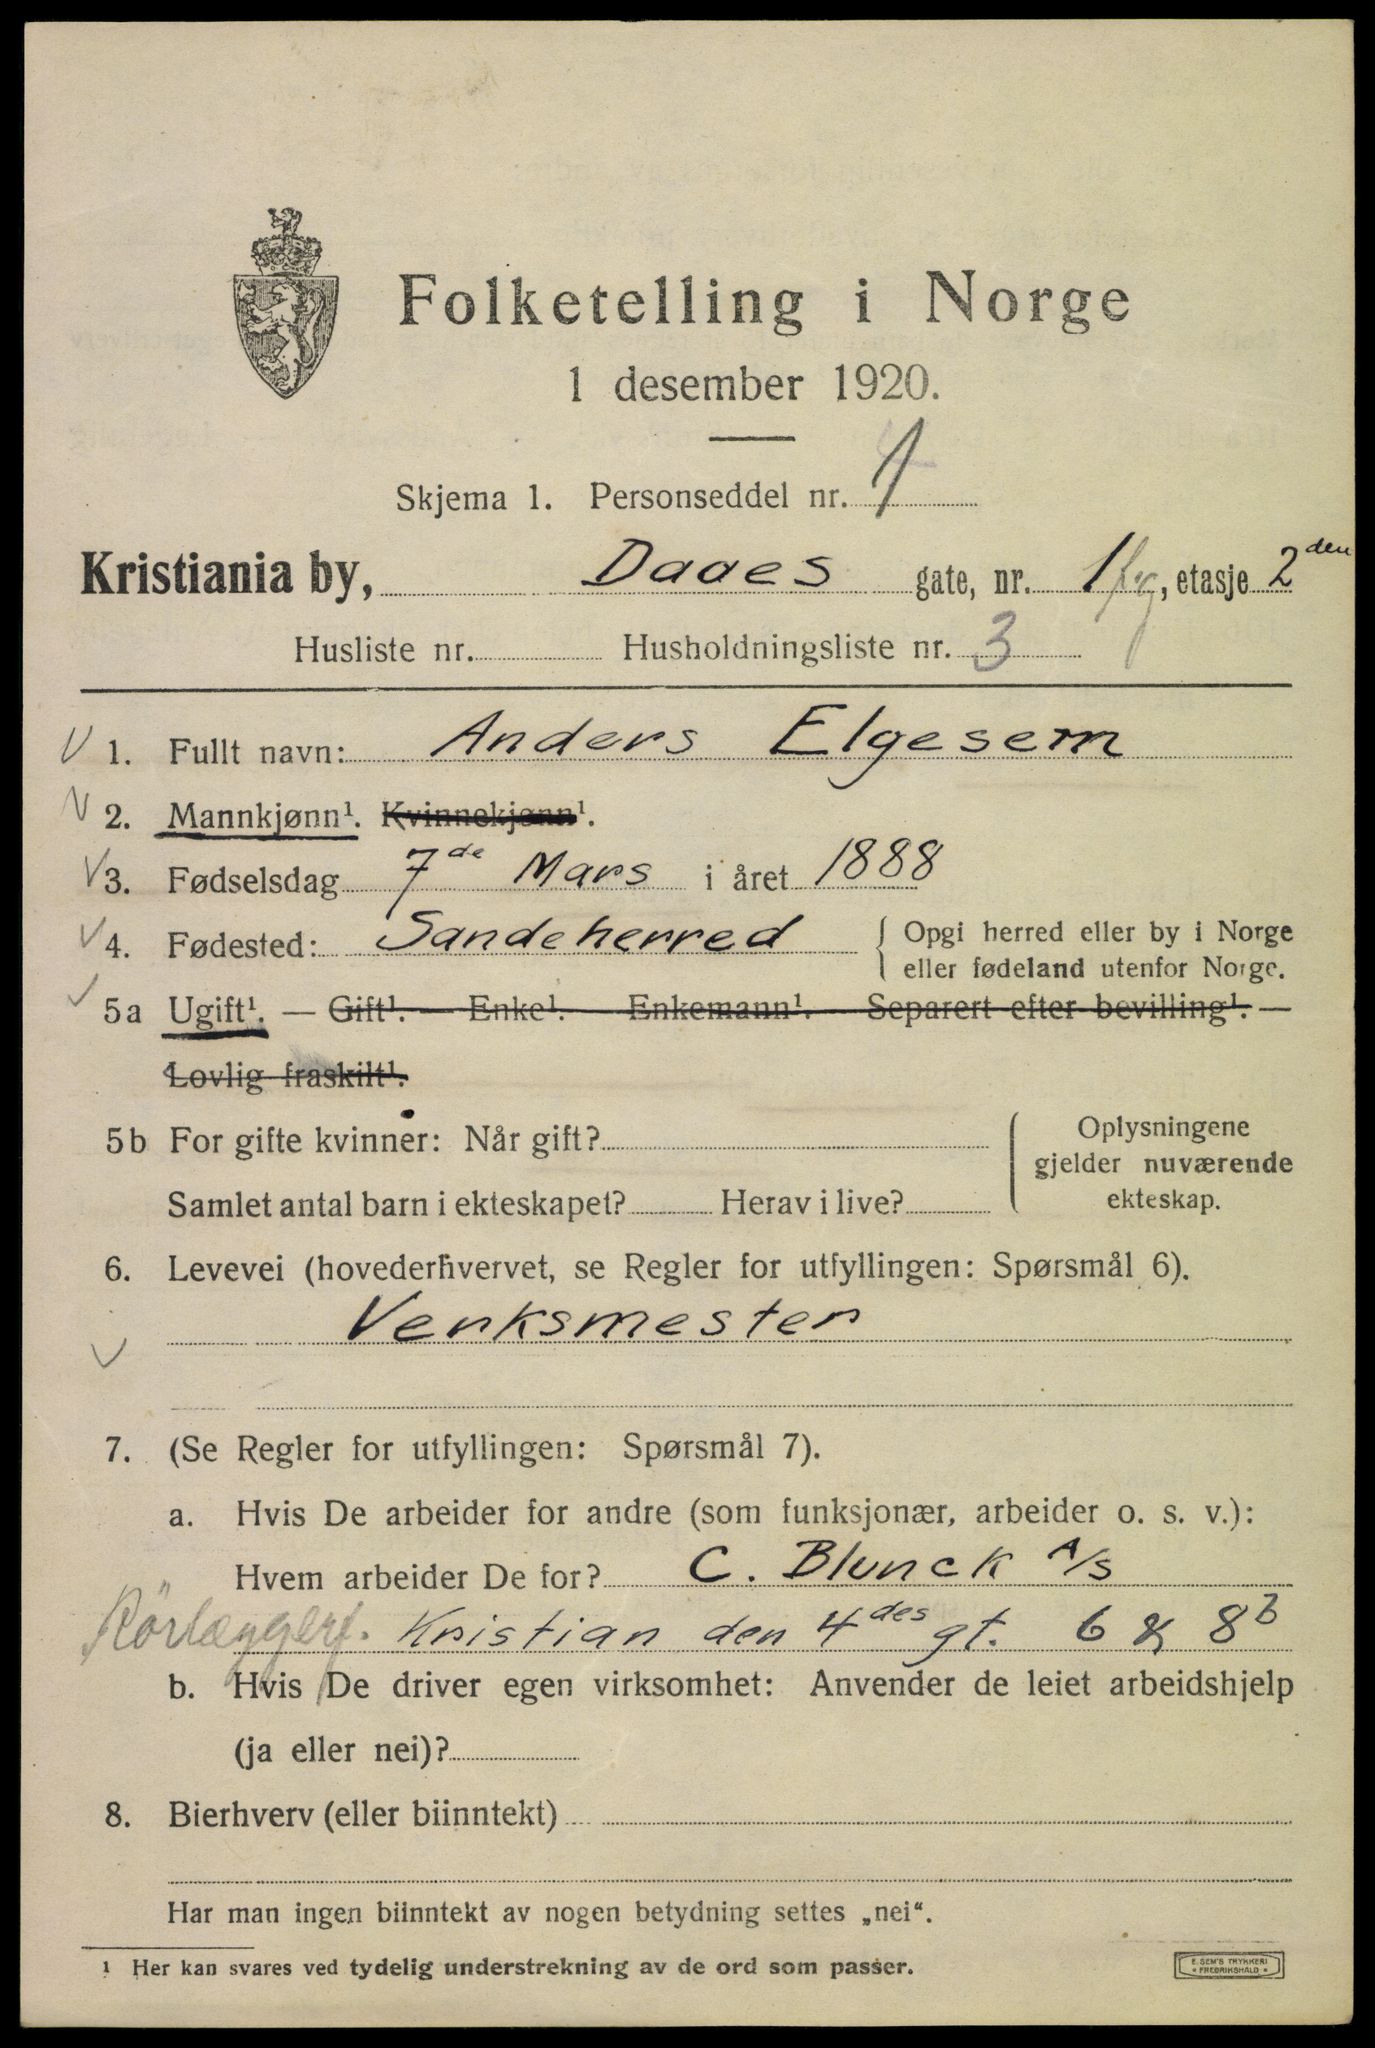 Folketelling i Norge
1 desember 1920.
Skjema 1. Personseddel nr. 1
Kristiania by, Daaes gate, nr. 1 , etasje 2den
Husliste nr. Husholdningsliste nr. 3
1. Fullt navn: Anders Elgesem
2. Mannkjønn¹. Kvinnekjønn¹.
3. Fødselsdag 7de Mars i året 1888
4. Fødested: Sandeherred { Opgi herred eller by i Norge
eller fødeland utenfor Norge.
5a Ugift¹. — Gift¹. — Enke¹. — Enkemann¹. — Separert efter bevilling¹. —
Lovlig fraskilt¹.
5b For gifte kvinner: Når gift?
Samlet antal barn i ekteskapet? Herav i live?
Oplysningene
gjelder nuværende
ekteskap.
6. Levevei (hovederhvervet, se Regler for utfyllingen: Spørsmål 6).
Verksmester
7. (Se Regler for utfyllingen: Spørsmål 7).
a. Hvis De arbeider for andre (som funksjonær, arbeider o. s. v.):
Hvem arbeider De for? C. Blunck A/S
Rörlæggerf. Kristian den 4des gt. 6 & 8b
b. Hvis De driver egen virksomhet: Anvender de leiet arbeidshjelp
(ja eller nei)?
8. Bierhverv (eller biinntekt)
Har man ingen biinntekt av nogen betydning settes „nei“.
¹ Her kan svares ved tydelig understrekning av de ord som passer.
E. SEM'S TRYKKERI
* FREDRIKSHALD *